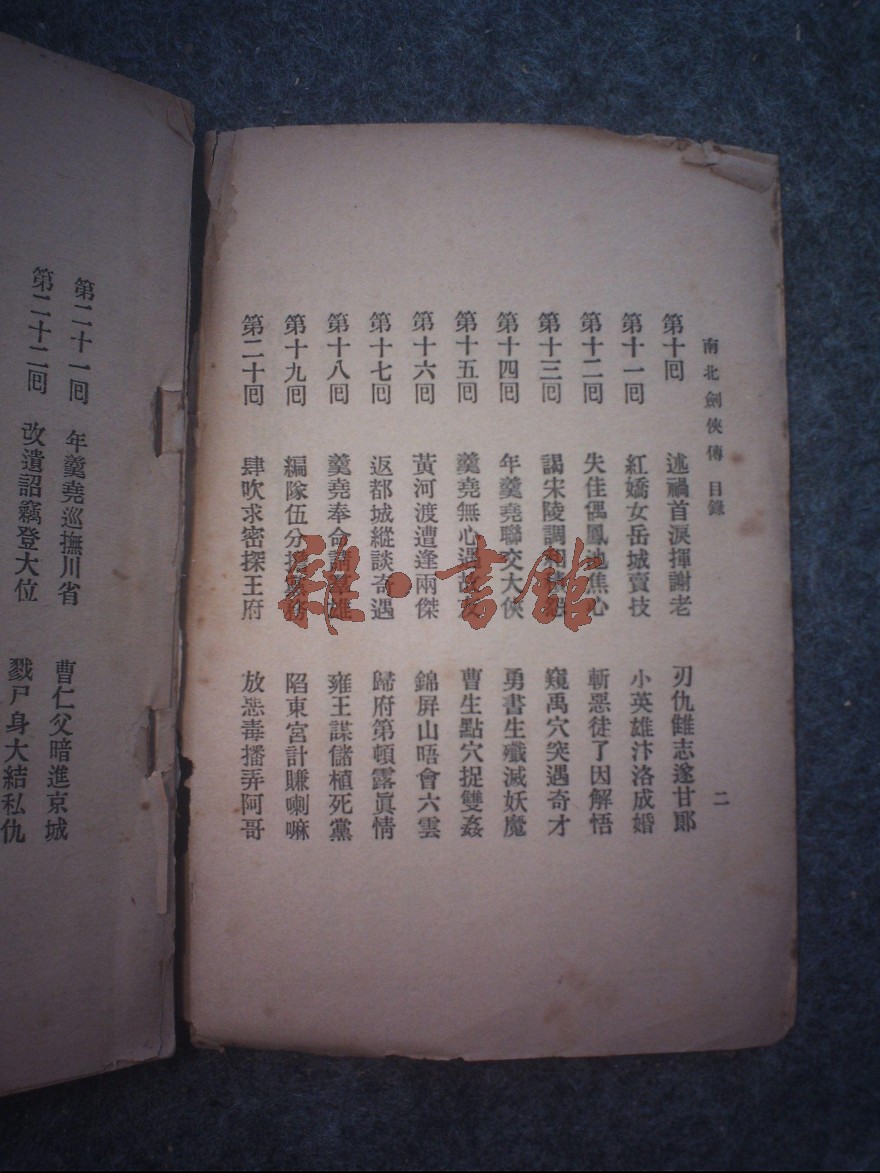 南北劍俠傳 目錄 二
第十回 述禍首淚揮謝老 刃仇讎志遂甘郎
第十一回 紅嬌女岳城賣技 小英雄汴洛成婚
第十二回 失佳偶鳳池焦心 斬惡徒了因解悟
第十三回 謁宋陵調 窺禹穴突遇奇才
第十四回 年羹堯聯交大俠 勇書生殲滅妖魔
第十五回 羹堯無心遇故 曹生點穴捉雙姦
第十六回 黃河渡遭逢兩傑 錦屏山晤會六雲
第十七回 返都城縱談奇遇 歸府第頓露眞情
第十八回 羹堯奉命 雍王謀儲植死黨
第十九回 編隊伍分 陷東宮計賺喇嘛
第二十回 肆吹求密探王府 放惡毒播弄阿哥
第二十一回 年羹堯巡撫川省 曹仁父暗進京城
第二十二回 改遺詔竊登大位 戮尸身大結私仇
雜·書館